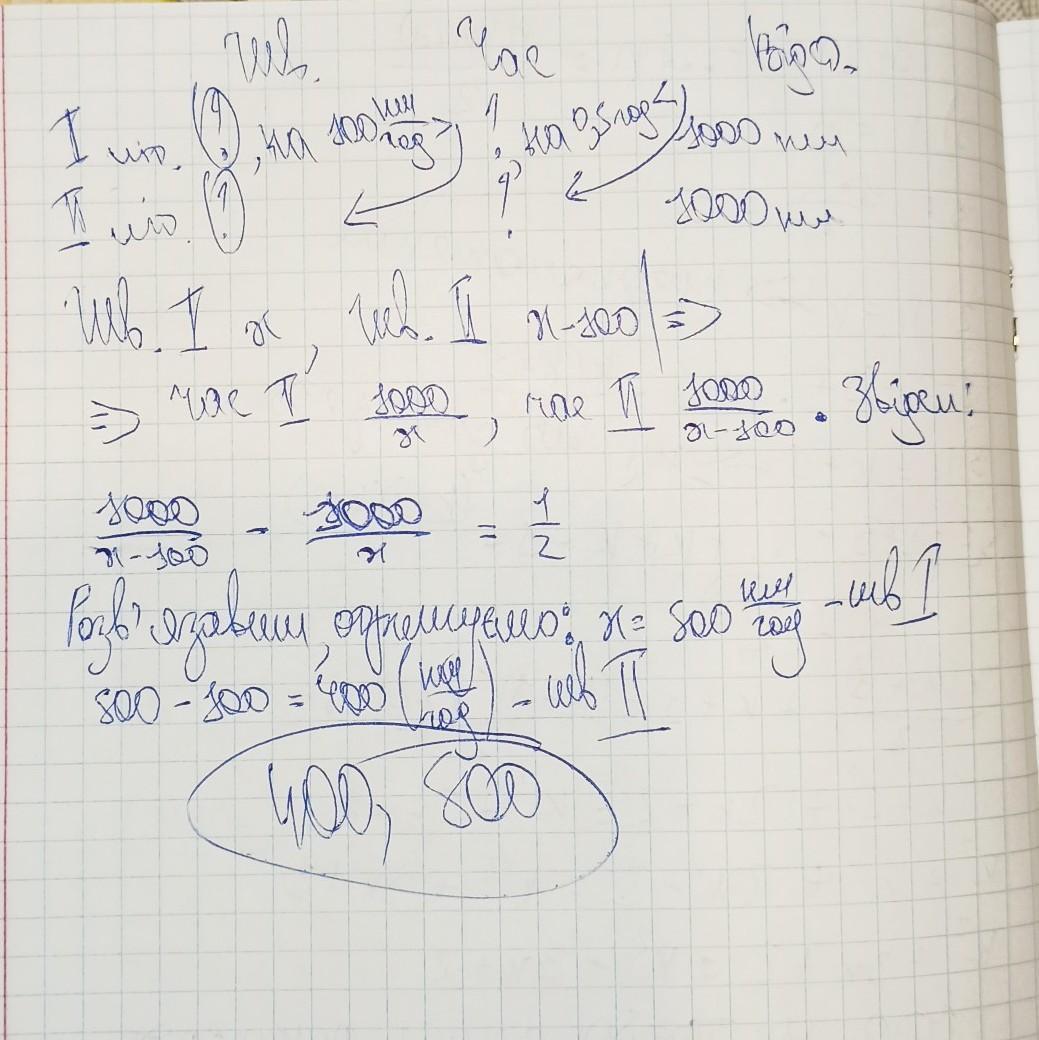 Шв. Час Відс.
I шо. ?, на 100 км/год > ?, на 0,5 год < 1000 км
II шо. ? ? 1000 км
Шв. I x, шв. II x-100 | ⇒
⇒ час I 1000/x, час II 1000/x-100. Звідси:
1000/x-100 - 1000/x = 1/2
Розв'язавши, отримуємо: x = 500 км/год - шв I
500 - 100 = 400 (км/год) - шв II
400, 500